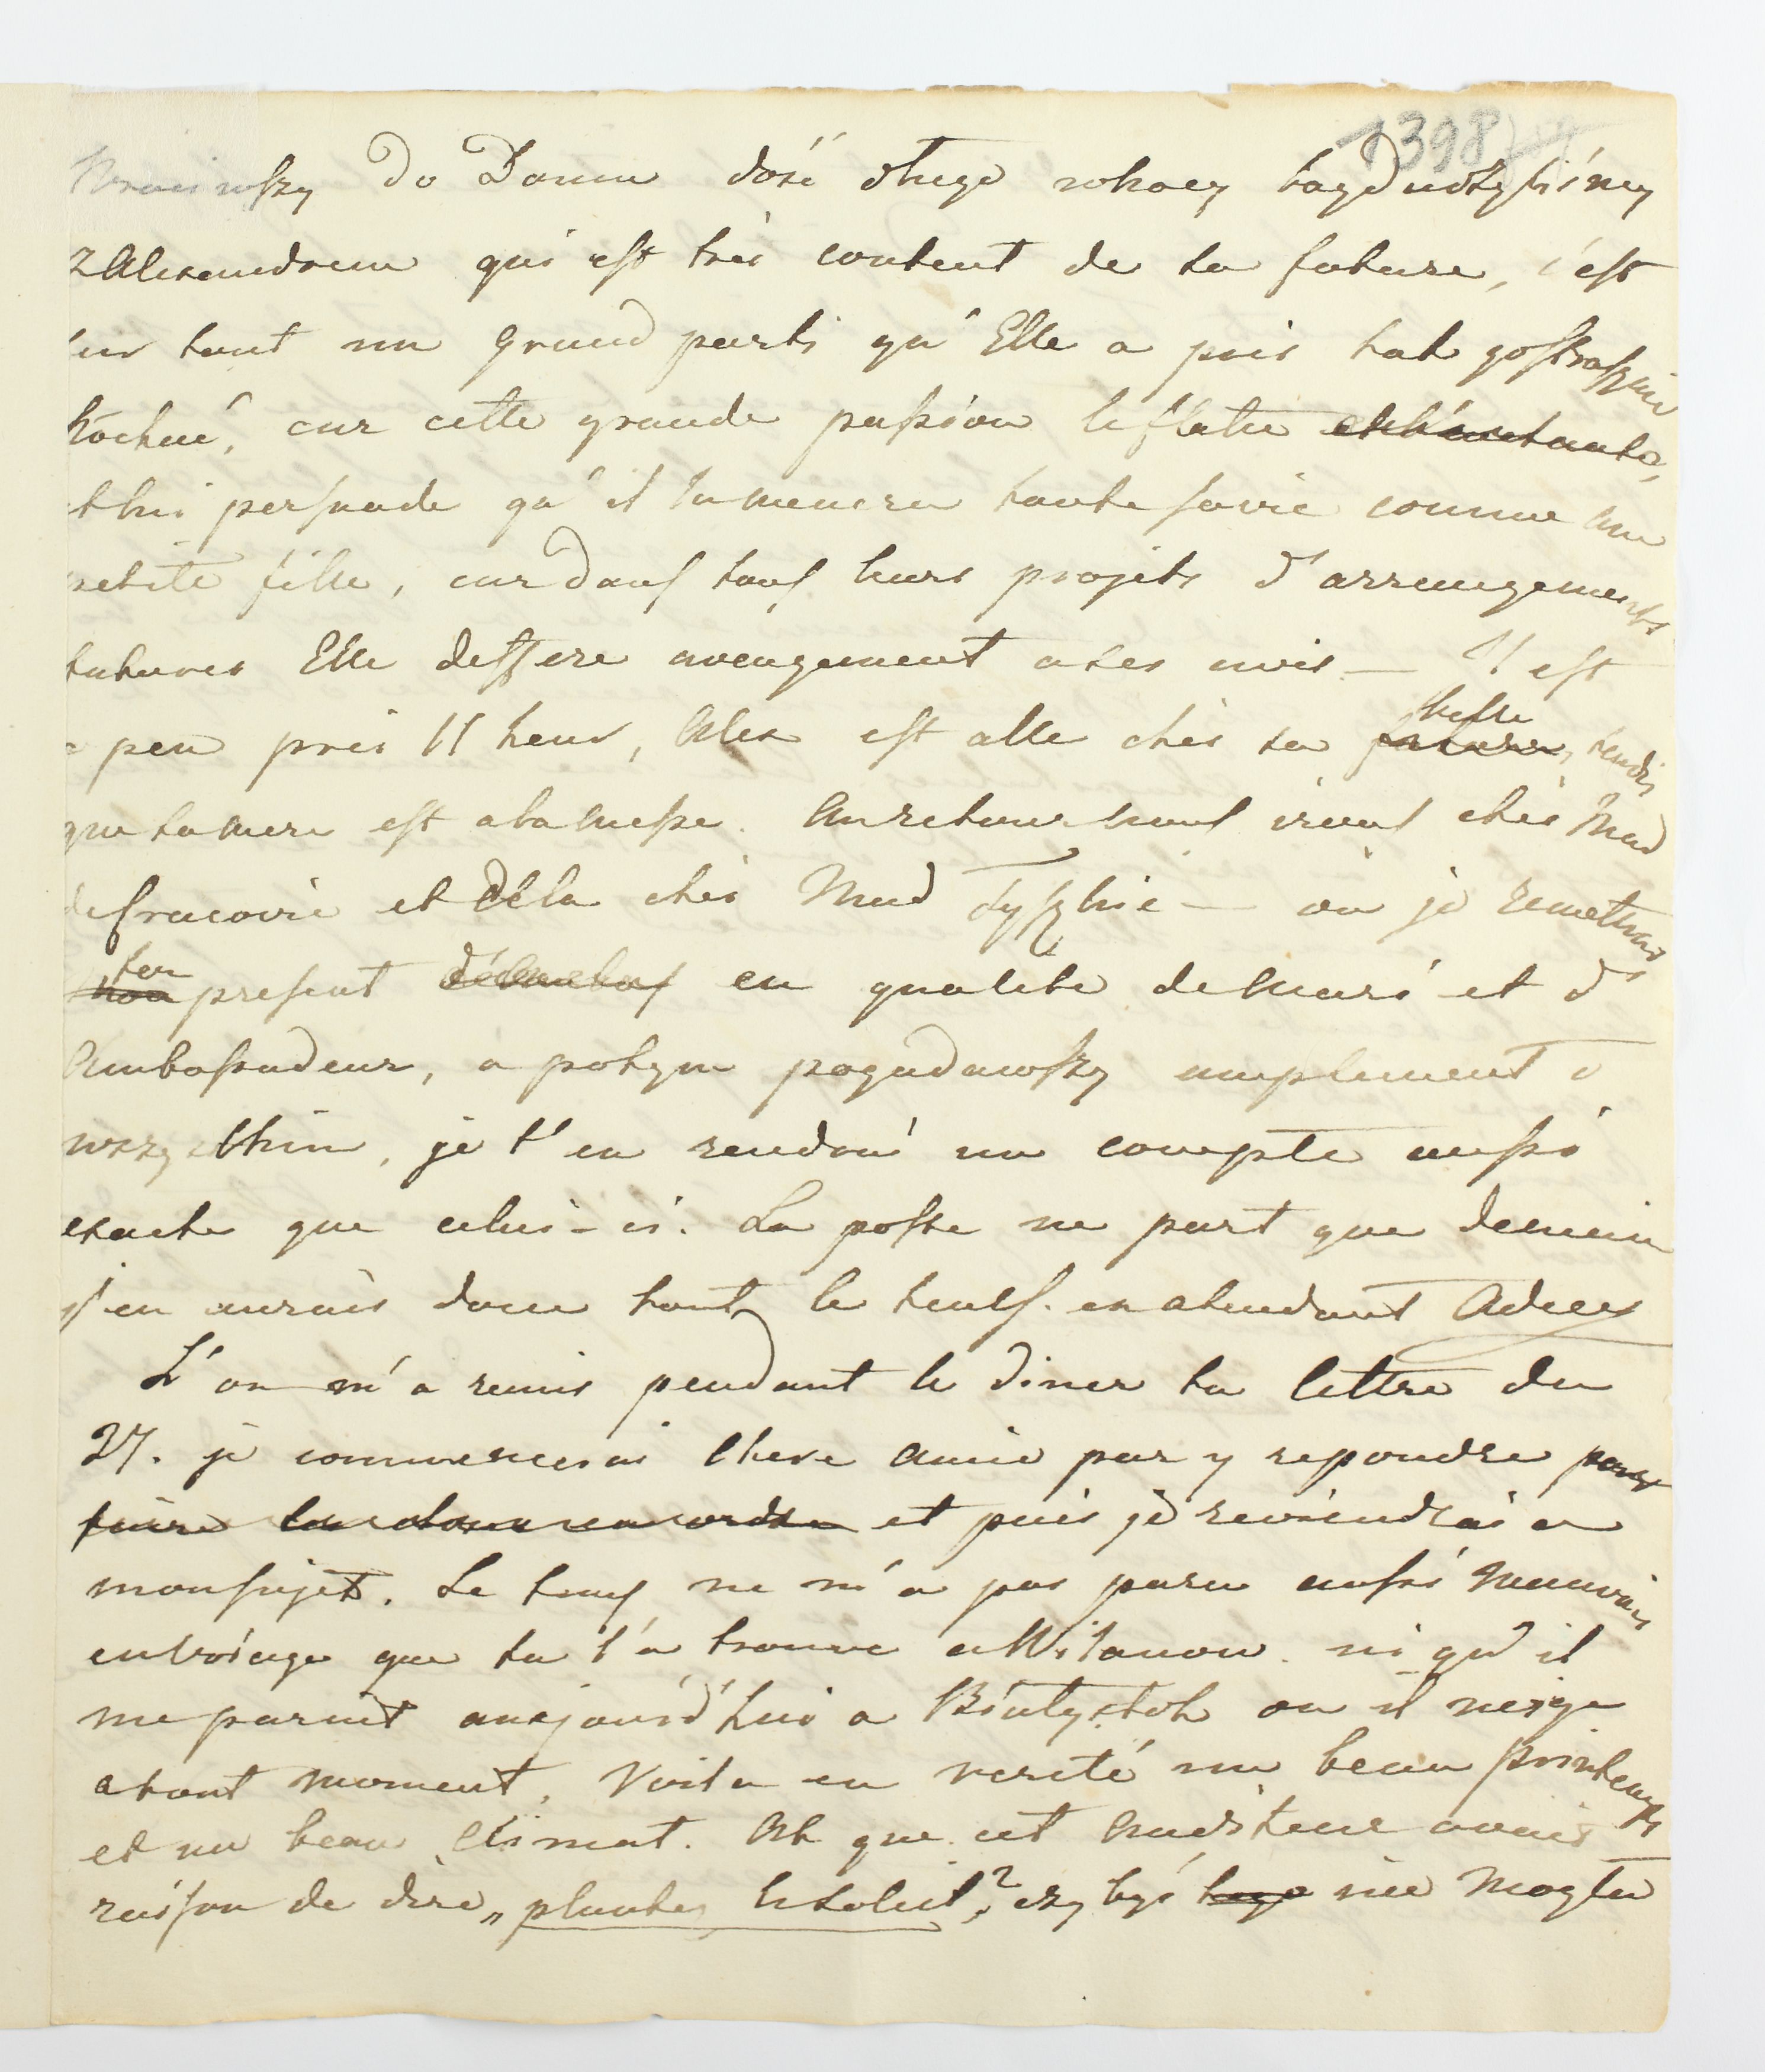 1398
Wrociwszy do Domu dość długo w nocy
z Alexandrem qui est très content de sa future, c'est
sur tout un Grand parti qu'Elle a pris tak go
kochać, car cette grande passion le flatte
et lui persuade qu'il la menera toute sa vie comme une
petite fille, car dans tous leurs projets d'arrengements
futures Elle deffere aveugement a ses avis — Il est
a peu près 11 heur, Alex est alle chés sa future, tandis
que ta mere est a la Messe. Au retour nous irons chés Mad
de Cracovie et de la chés Mad Tyszkie — où je remettrais
ton present en qualité de Mari et d'
Ambassadeur, a potym pogadawszy amplement o
wszystkim, je t'en rendrai un compte aussi
exacte que celui-ci. La poste ne part que demain
j'en aurais donc tout le tems. en atendant Adieu
L'on m'a remis pendant le diner ta lettre du
27. je commencerai Chere Amie par y repondre pour
faire et puis je reviendrai a
mon sujet. Le tems ne m'a pas paru aussi Mauvais
en voiage que tu l'a trouve a Wilanow. ni qu'il
me parait aujourd'hui a Białystok ou il neige
a tout moment. Voila en verité un beau printemps
et un beau Climat. Ah que cet avais
raison de dire „plantes le Soleil"? czy byś tego nie Mogła